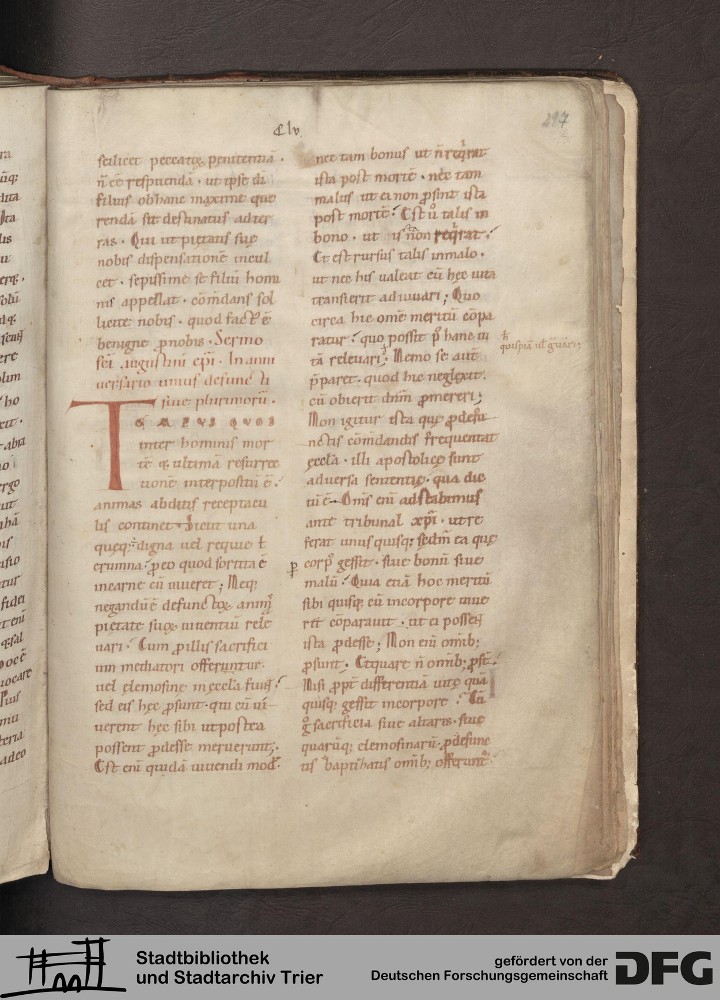 Clv.
297
scilicet peccatoꝝ penitentiā.
ñ eē respuendā. ut ipse di
filius ob hanc maxime que
rendā sit destinatus ad ter
ras. Qui ut pietatis suę
nobis dispensationē incul
cet. sepissime se filiū homi
nis appellat. cōmdans sol
licite nobis. quod fact᷒ ē
benigne p nobis. Sermo
sc̄i augustini ep̄i. In anni
versario unius defuncti
sive plurimorū.
TEMPUS QUOD
inter hominis mor
tē & ultimā resurrec
tionē interpositū ē.
animas abditis receptacu
lis continet. Sicut una
queq; digna vel requie ł
erumna. p eo quod sortita ē
in carne cū viveret; Neq;
negandū ē defunctoꝝ animas
pietate suoꝝ viventiū rele
vari. Cum p illis sacrifici
um mediatori offeruntur.
vel elemosine in eccła fiunt.
sed eis hęc psunt. qui cū vi
verent hęc sibi ut postea
possent pdesse meruerunt;
Est eni quidā vivendi mod᷒.
nec tam bonus ut ñ reqrat
ista post mortē. nec tam
malus ut ei non psint ista
post mortē. Est ů talis in
bono. ut ista non reqrat.
Et est rursus talis in malo.
ut nec his valeat cū hęc vita
transierit adiuvari; Quo
circa hic omē meritū cōpa
ratur. quo possit p hanc vi
tā relevari. Nemo se aut
p̄paret. quod hic neglexit.
cū obierit dn̄m pmereri;
Non igitur ista que p defu
nctis cōmdandis frequentat
eccła. illi apostolicę sunt
adversa sententię. qua dic
tū ē. Om̄s eni adstabimus
ante tribunal xp̄i. ut re
ferat unusquisq; sedm ea quę
corp᷒ gessit. sive bonū sive
malū. Quia etiā hoc meritū
sibi quisq; cū in corpore vive
ret cōparavit. ut ei possent
ista pdesse; Non eni omib;
psunt. Et quare ñ omib; psūt.
Nisi ppt differentiā vitę quā
quisq; gessit in corpore. Cū
g sacrificia sive altaris. sive
quarūq; elemosinarū. p defunc
tis baptizatis omib; offerunt.
quispiā ul gvari;
Stadtbibliothek
und Stadtarchiv Trier
gefördert von der
Deutschen Forschungsgemeinschaft
DFG